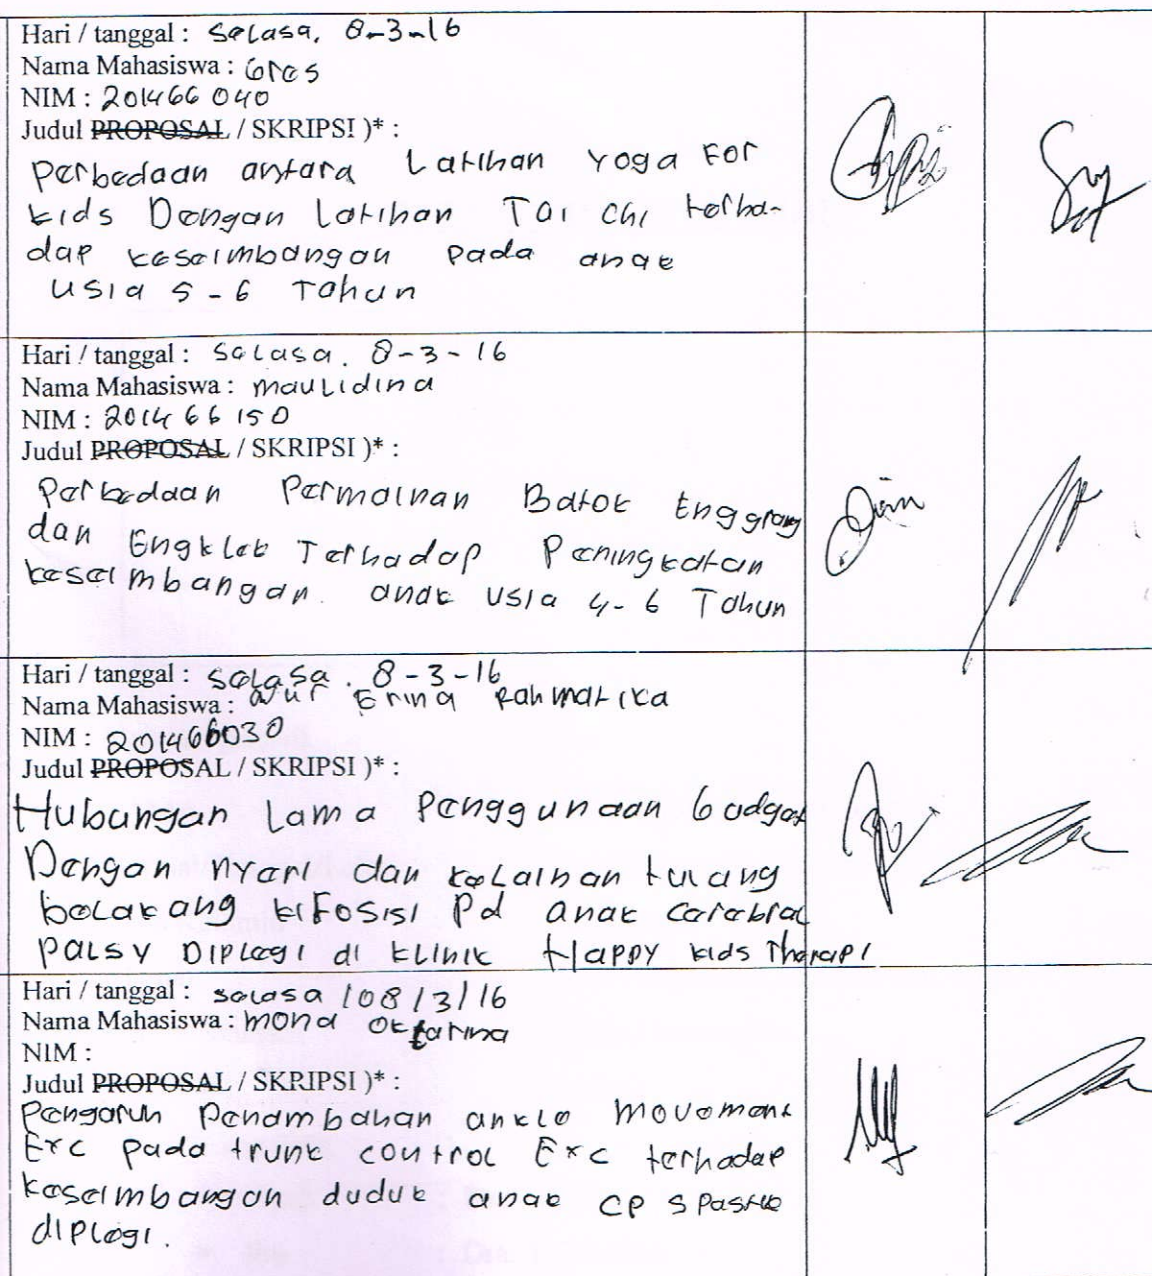 Hari / tanggal : Selasa, 8-3-16
Nama Mahasiswa : Gres
NIM : 201466 040
Judul PROPOSAL / SKRIPSI )* :
Perbedaan antara Latihan Yoga For
kids Dengan Latihan Tai chi terha-
dap keseimbangan pada anak
usia 5-6 Tahun
Hari / tanggal : Selasa. 8-3-16
Nama Mahasiswa : maulidina
NIM : 2014 66 150
Judul PROPOSAL / SKRIPSI )* :
Perbedaan Permainan Batok Enggrang
dan Engklek Terhadap Peningkatan
keseimbangan. anak usia 4-6 Tahun
Hari / tanggal : Selasa. 8-3-16
Nama Mahasiswa : Nur Erina Rahmatika
NIM : 201466030
Judul PROPOSAL / SKRIPSI )* :
Hubungan Lama Penggunaan Gadget
Dengan nyeri dan kelainan tulang
belakang kifosisi Pd anak Cerebral
palsy Diplegi di klinik Happy kids Therapi
Hari / tanggal : selasa /08/3/16
Nama Mahasiswa : Mona Oktarina
NIM :
Judul PROPOSAL / SKRIPSI )* :
Pengaruh Penambahan ankle movement
Exc pada trunk control Exc terhadap
keseimbangan duduk anak CP Spastik
diplegi.